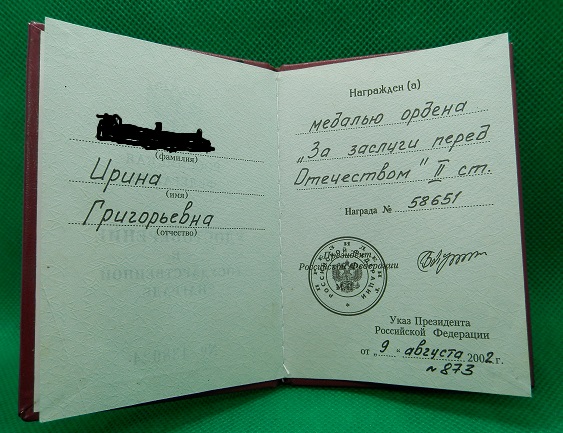 (фамилия)
Ирина
(имя)
Григорьевна
(отчество)
Награжден (а)
медалью ордена
„За заслуги перед
Отечеством" II ст.
Награда № 58651
Президент
Российской Федерации
Указ Президента
Российской Федерации
от „ 9 " августа 2002 г.
№ 873